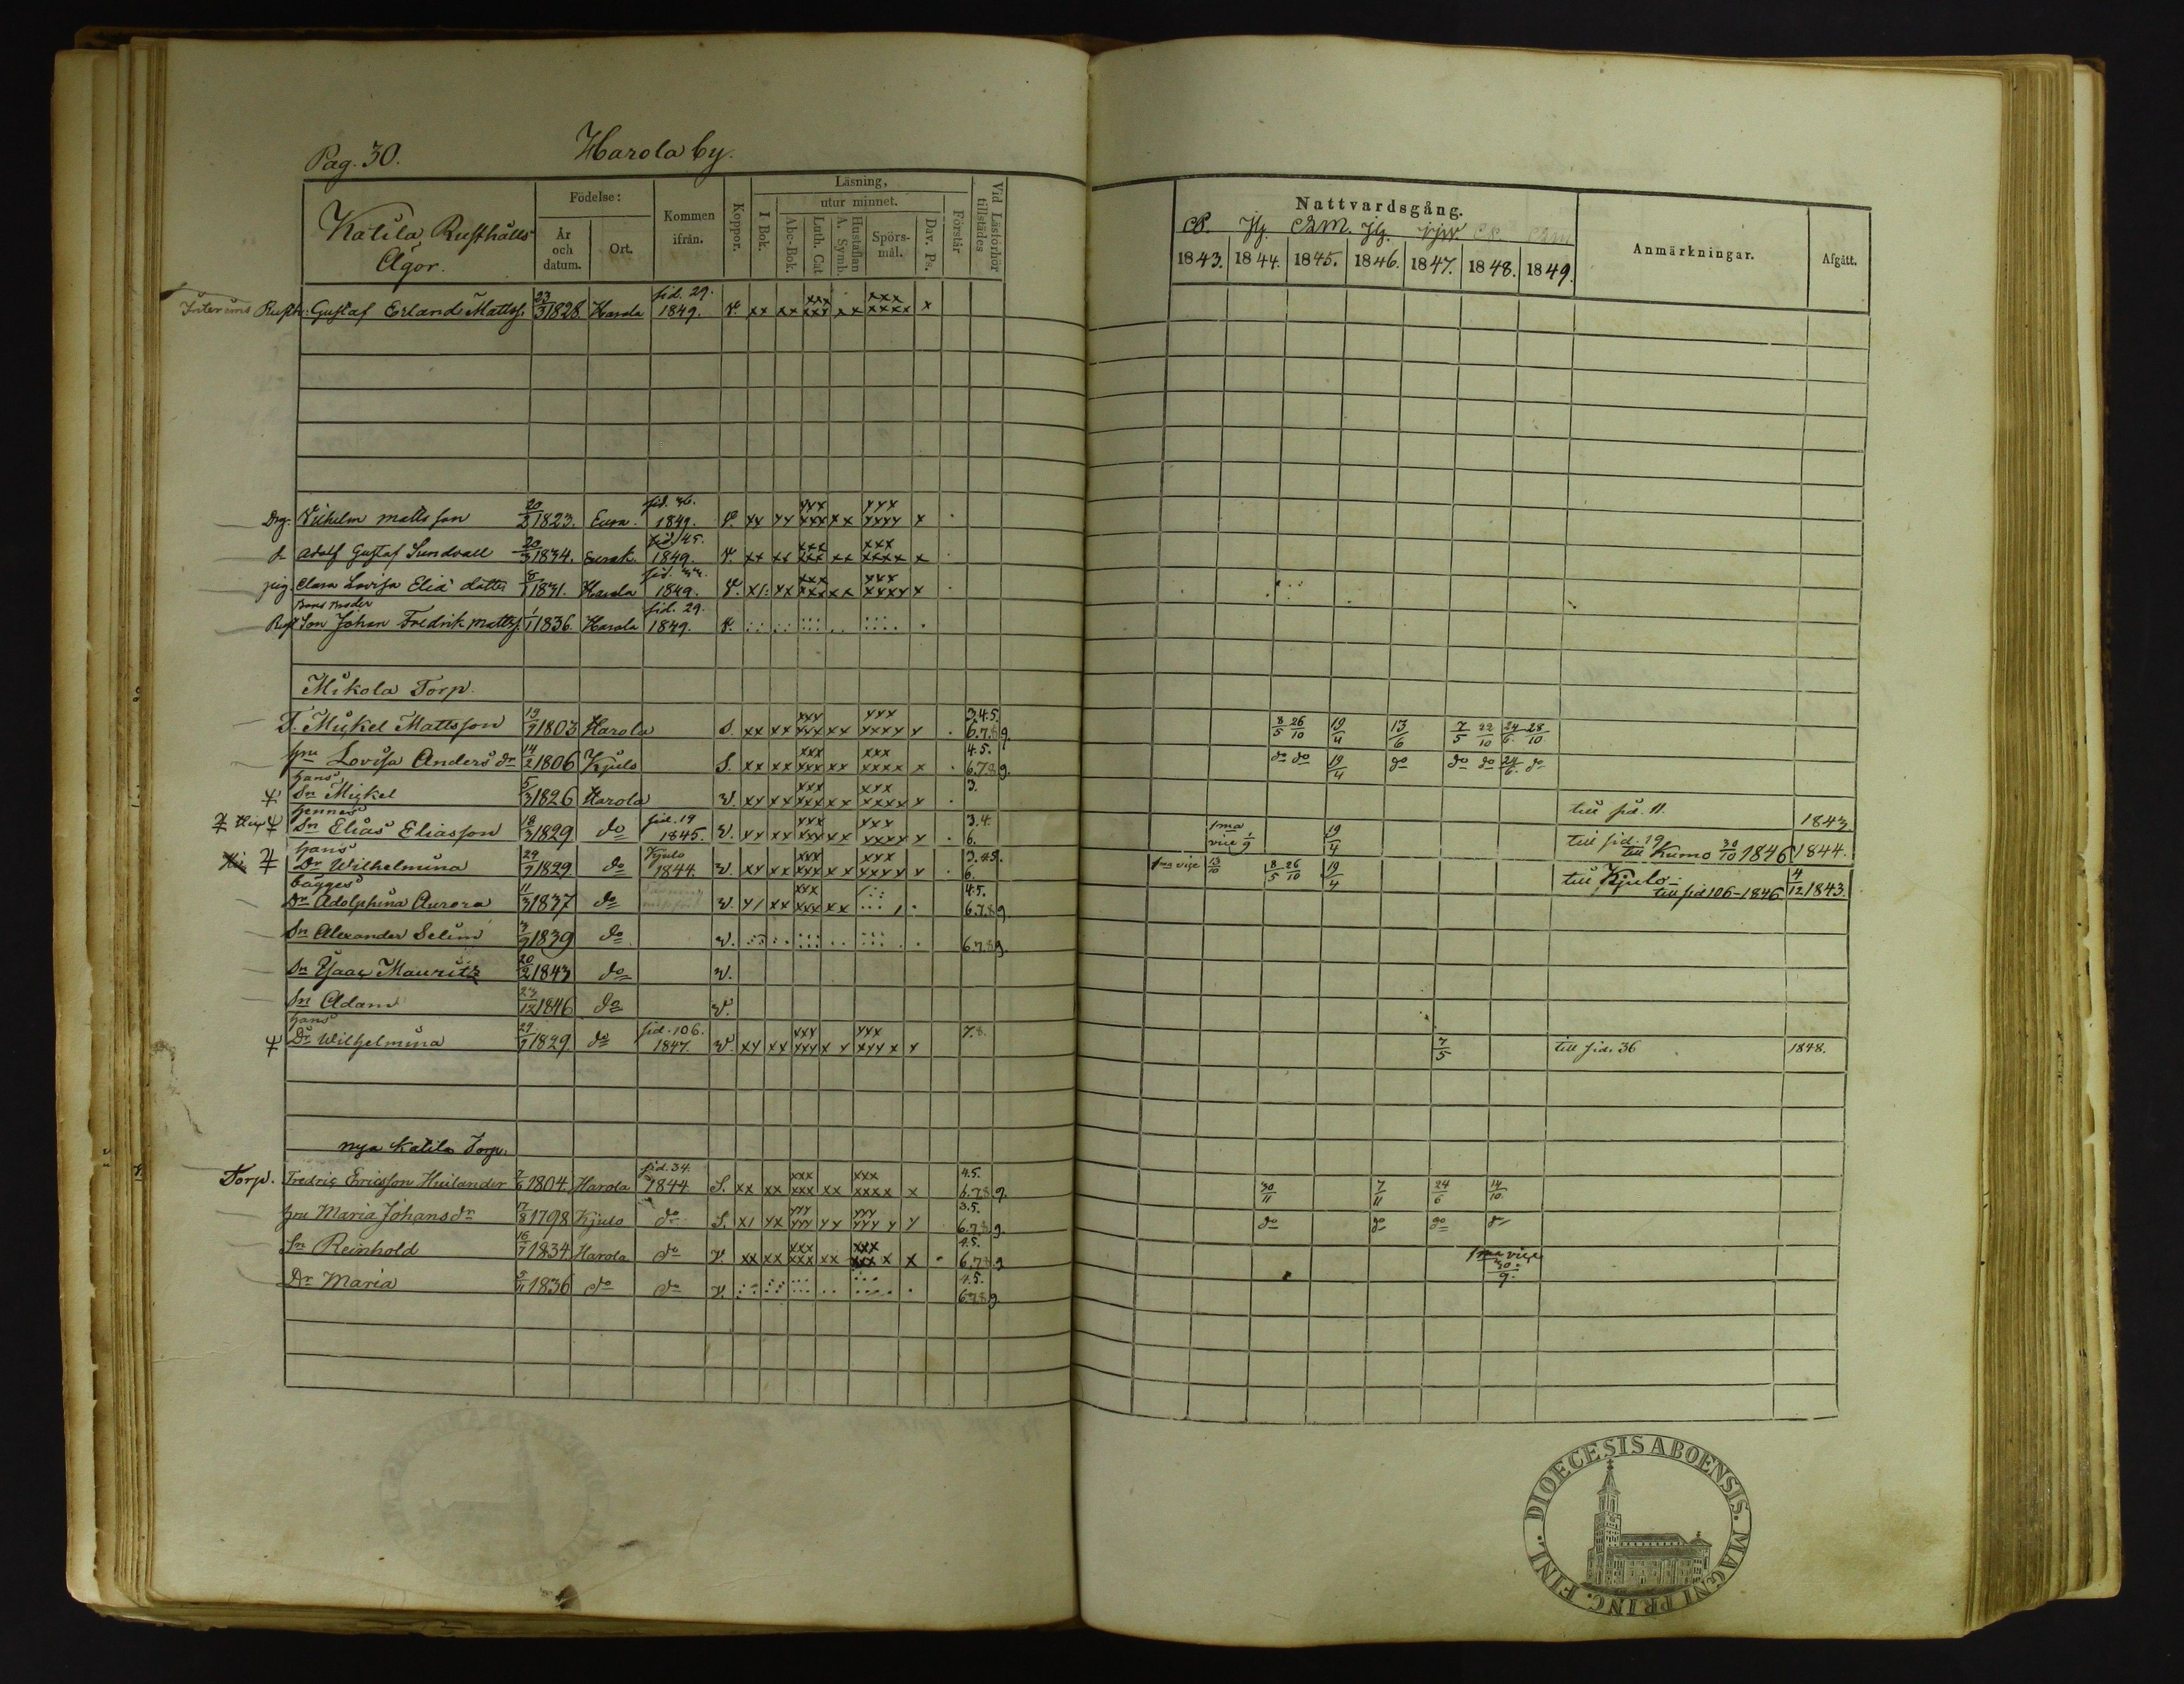 Pag. 30. Harola by.
Katila Rusthålls Ägor.
Födelse:
År och datum.
Ort.
Kommen ifrån.
Koppor.
Läsning,
I Bok.
utur minnet.
Abc-Bok.
Luth. Cat
Hustaflan A. Symb.
Spörsmål.
Dav. Ps.
Förstår
Vid Läsförhör tillstädes
Nattvardsgång.
1843. 1844. 1845. 1846. 1847. 1848. 1849.
Anmärkningar.
Afgått.
Interims Rusth: Gustaf Erland Mattss. 23/3 1828. Harola sid. 29. 1849. V. xx xx xxx xxx xx xxx xxxx x
Drg. Vilhelm Matts son 20/3 1823. Eura. 1849. V. xx xx xxx xxx xx xxx xxxx x
d Adolf Gustaf Sundvall 20/3 1834. Eurak. sid. 45. 1849. V. xx xx xxx xxx xx xxx xxxx x
pig. Clara Lovisa Eliä dotter 1831. Harola 1849. V. x/: xx xxx xxx xx xxx xxxx x
Bons Broder
Rust Son Johan Fredrik Mattss. 1/1 1836. Harola sid. 29. 1849. V.
Mikola Torp.
T. Mickel Mattsson 19/9 1803 Harola S. xx xx xxx xxx xx xxx xxxx x 3.4.5. 6.7.8 9. 8/5 26/10 19/4 13/6 7/5 22/10 24/6 28/10
hu Lovisa Anders dr 14/2 1806 Kjulo S. xx xx xxx xxx xx xxx xxxx x 4.5. 6.7.8 9. do do 19/4 do do do 24/6 do
hans
Sn Mickel 5/3 1826 Harola V. xx xx xxx xxx xx xxx xxxx x 3. till sid. 11. 1843.
hennes
Sn Elias Eliasson 18/3 1829 do sid. 19 1845. V. xx xx xxx xxx xx xxx xxxx x 3.4. 6. 1ma vice 1/9 19/4 till sid. 19 till Kumo 30/10 1846 1844.
hans
Dr Wilhelmina 29/9 1829 do Kjulo 1844. V. xx xx xxx xxx xx xxx xxxx x 3.4.5. 6. 1ma vice 13/10 8/5 26/10 19/4 till Kjulo - till sid 106 - 1846 4/12 1843.
bägges
Dr Adolphina Aurora 11/3 1837 do V. x/ xx xxx xxx xx 4.5. 6.7.8 9
Sn Alexander Selim 3/9 1839 do V. 6.7.8 9.
Sn Isaac Mauritz 20/2 1843 do V.
Sn Adam 23/12 1846 do V.
hans
Dr Wilhelmina 29/9 1829 do sid. 106. 1847. V. xx xx xxx xxx x x xxx xxx x x 7.8. 7/5 till sid. 36 1848.
nya Katila Torp.
Torp. Fredric Ericsson Huilander 7/6 1804 Harola sid. 34. 1844 S. xx xx xxx xxx xx xxx xxxx x 4.5. 6.7.8 9. 30/11 7/11 24/6 14/10
hu Maria Johans dr 17/8 1798 Kjulo do S. x/ xx xxx xxx xx xxx xxx x x 3.5. 6.7.8 9. do do do do
Sn Reinhold 16/7 1834 Harola do V. xx xx xxx xxx xx xxx xxx x x 4.5. 6.7.8 9 1ma vice 30/9.
Dr Maria 5/4 1836 do do V. 4.5. 6.7.8 9
DIOECESIS ABOENSIS. MAGNI PRINC. FINL.